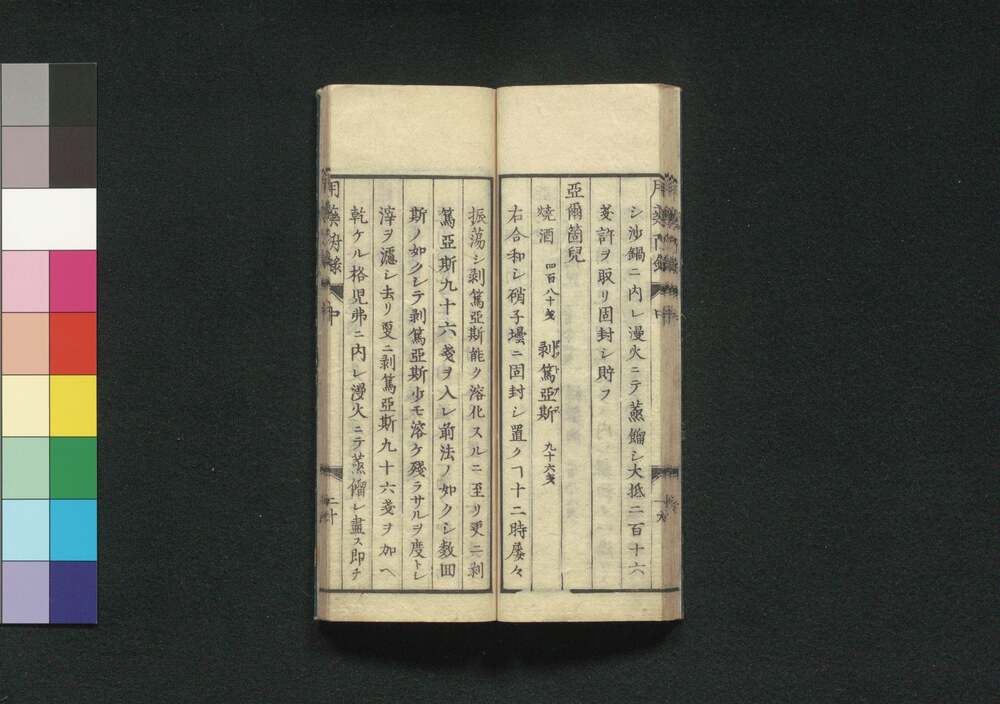 シ沙鍋ニ内レ漫火ニテ蒸餾シ大抵二百十六
戔許ヲ取リ固封シ貯フ
亞爾箇兒
燒酒 四百八十戔 剥篤亞斯 九十六戔
右合和シ硝子壜ニ固封シ置クヿ十二時屡々
振蕩シ剥篤亞斯能ク溶化スルニ至リ更ニ剥
篤亞斯九十六戔ヲ入レ前法ノ如クシ数囬
斯ノ如クシテ剥篤亞斯少モ溶ケ殘ラサルヲ度トシ
滓ヲ濾シ去リ更ニ剥篤亞斯九十六戔ヲ加ヘ
乾ケル格兒弗ニ内レ漫火ニテ蒸餾シ盡ス即チ
用藥附録 中 二十